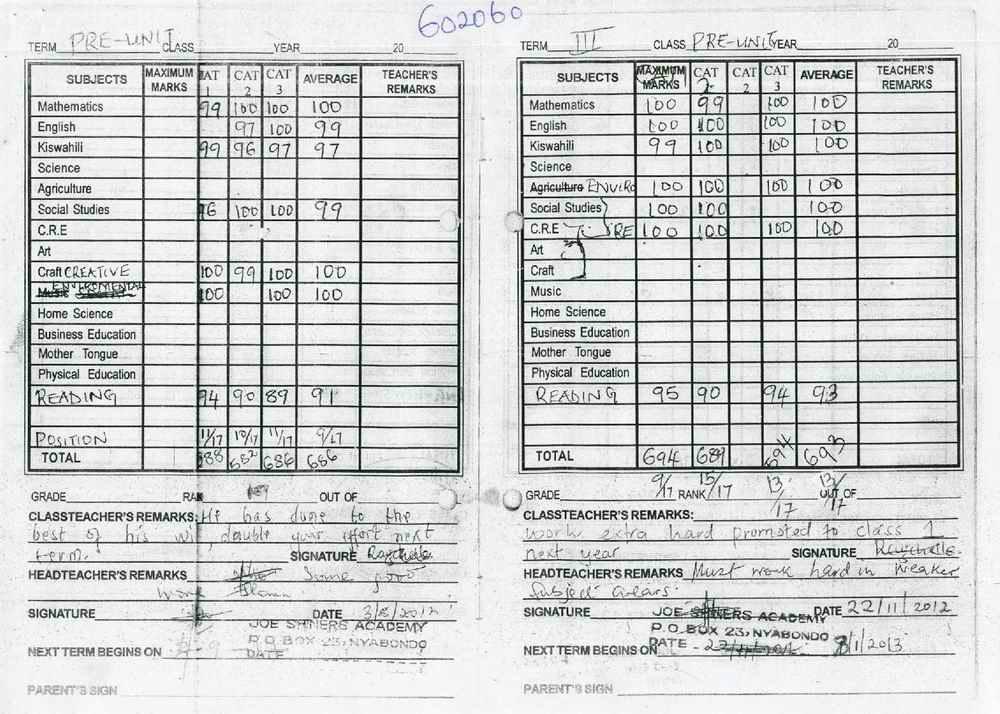 602060
TERM PRE-UNIT CLASS YEAR 20
SUBJECTS MAXIMUM MARKS CAT 1 CAT 2 CAT 3 AVERAGE TEACHER'S REMARKS
Mathematics 99 100 100 100
English 97 100 99
Kiswahili 99 96 97 97
Science
Agriculture
Social Studies 96 100 100 99
C.R.E
Art
Craft CREATIVE 100 99 100 100
Music ENVIROMENTAL 100 100 100
Home Science
Business Education
Mother Tongue
Physical Education
READING 94 90 89 91
POSITION 11/17 10/17 11/17 9/17
TOTAL 588 582 686 686
GRADE RANK OUT OF
CLASSTEACHER'S REMARKS: He has done to the
best of his double your effort next
term. SIGNATURE
HEADTEACHER'S REMARKS Some good
work
SIGNATURE DATE 3/8/2012
JOE SHINERS ACADEMY
P.O BOX 23, NYABONDO
DATE
NEXT TERM BEGINS ON
PARENT'S SIGN
TERM III CLASS PRE-UNIT YEAR 20
SUBJECTS MAXIMUM MARKS CAT 2 CAT 2 CAT 3 AVERAGE TEACHER'S REMARKS
Mathematics 100 99 100 100
English 100 100 100 100
Kiswahili 99 100 100 100
Science
Agriculture ENVIRO 100 100 100 100
Social Studies 100 100 100
C.R.E RE 100 100 100 100
Art
Craft
Music
Home Science
Business Education
Mother Tongue
Physical Education
READING 95 90 94 93
TOTAL 694 689 594 693
9/17 15/17 13/17 13/17
GRADE RANK OUT OF
CLASSTEACHER'S REMARKS:
work extra hard promoted to class 1
next year SIGNATURE
HEADTEACHER'S REMARKS Must work hard in weaker
subject areas.
SIGNATURE DATE 22/11/2012
JOE SHINERS ACADEMY
P.O BOX 23, NYABONDO
DATE
NEXT TERM BEGINS ON 8/1/2013
PARENT'S SIGN